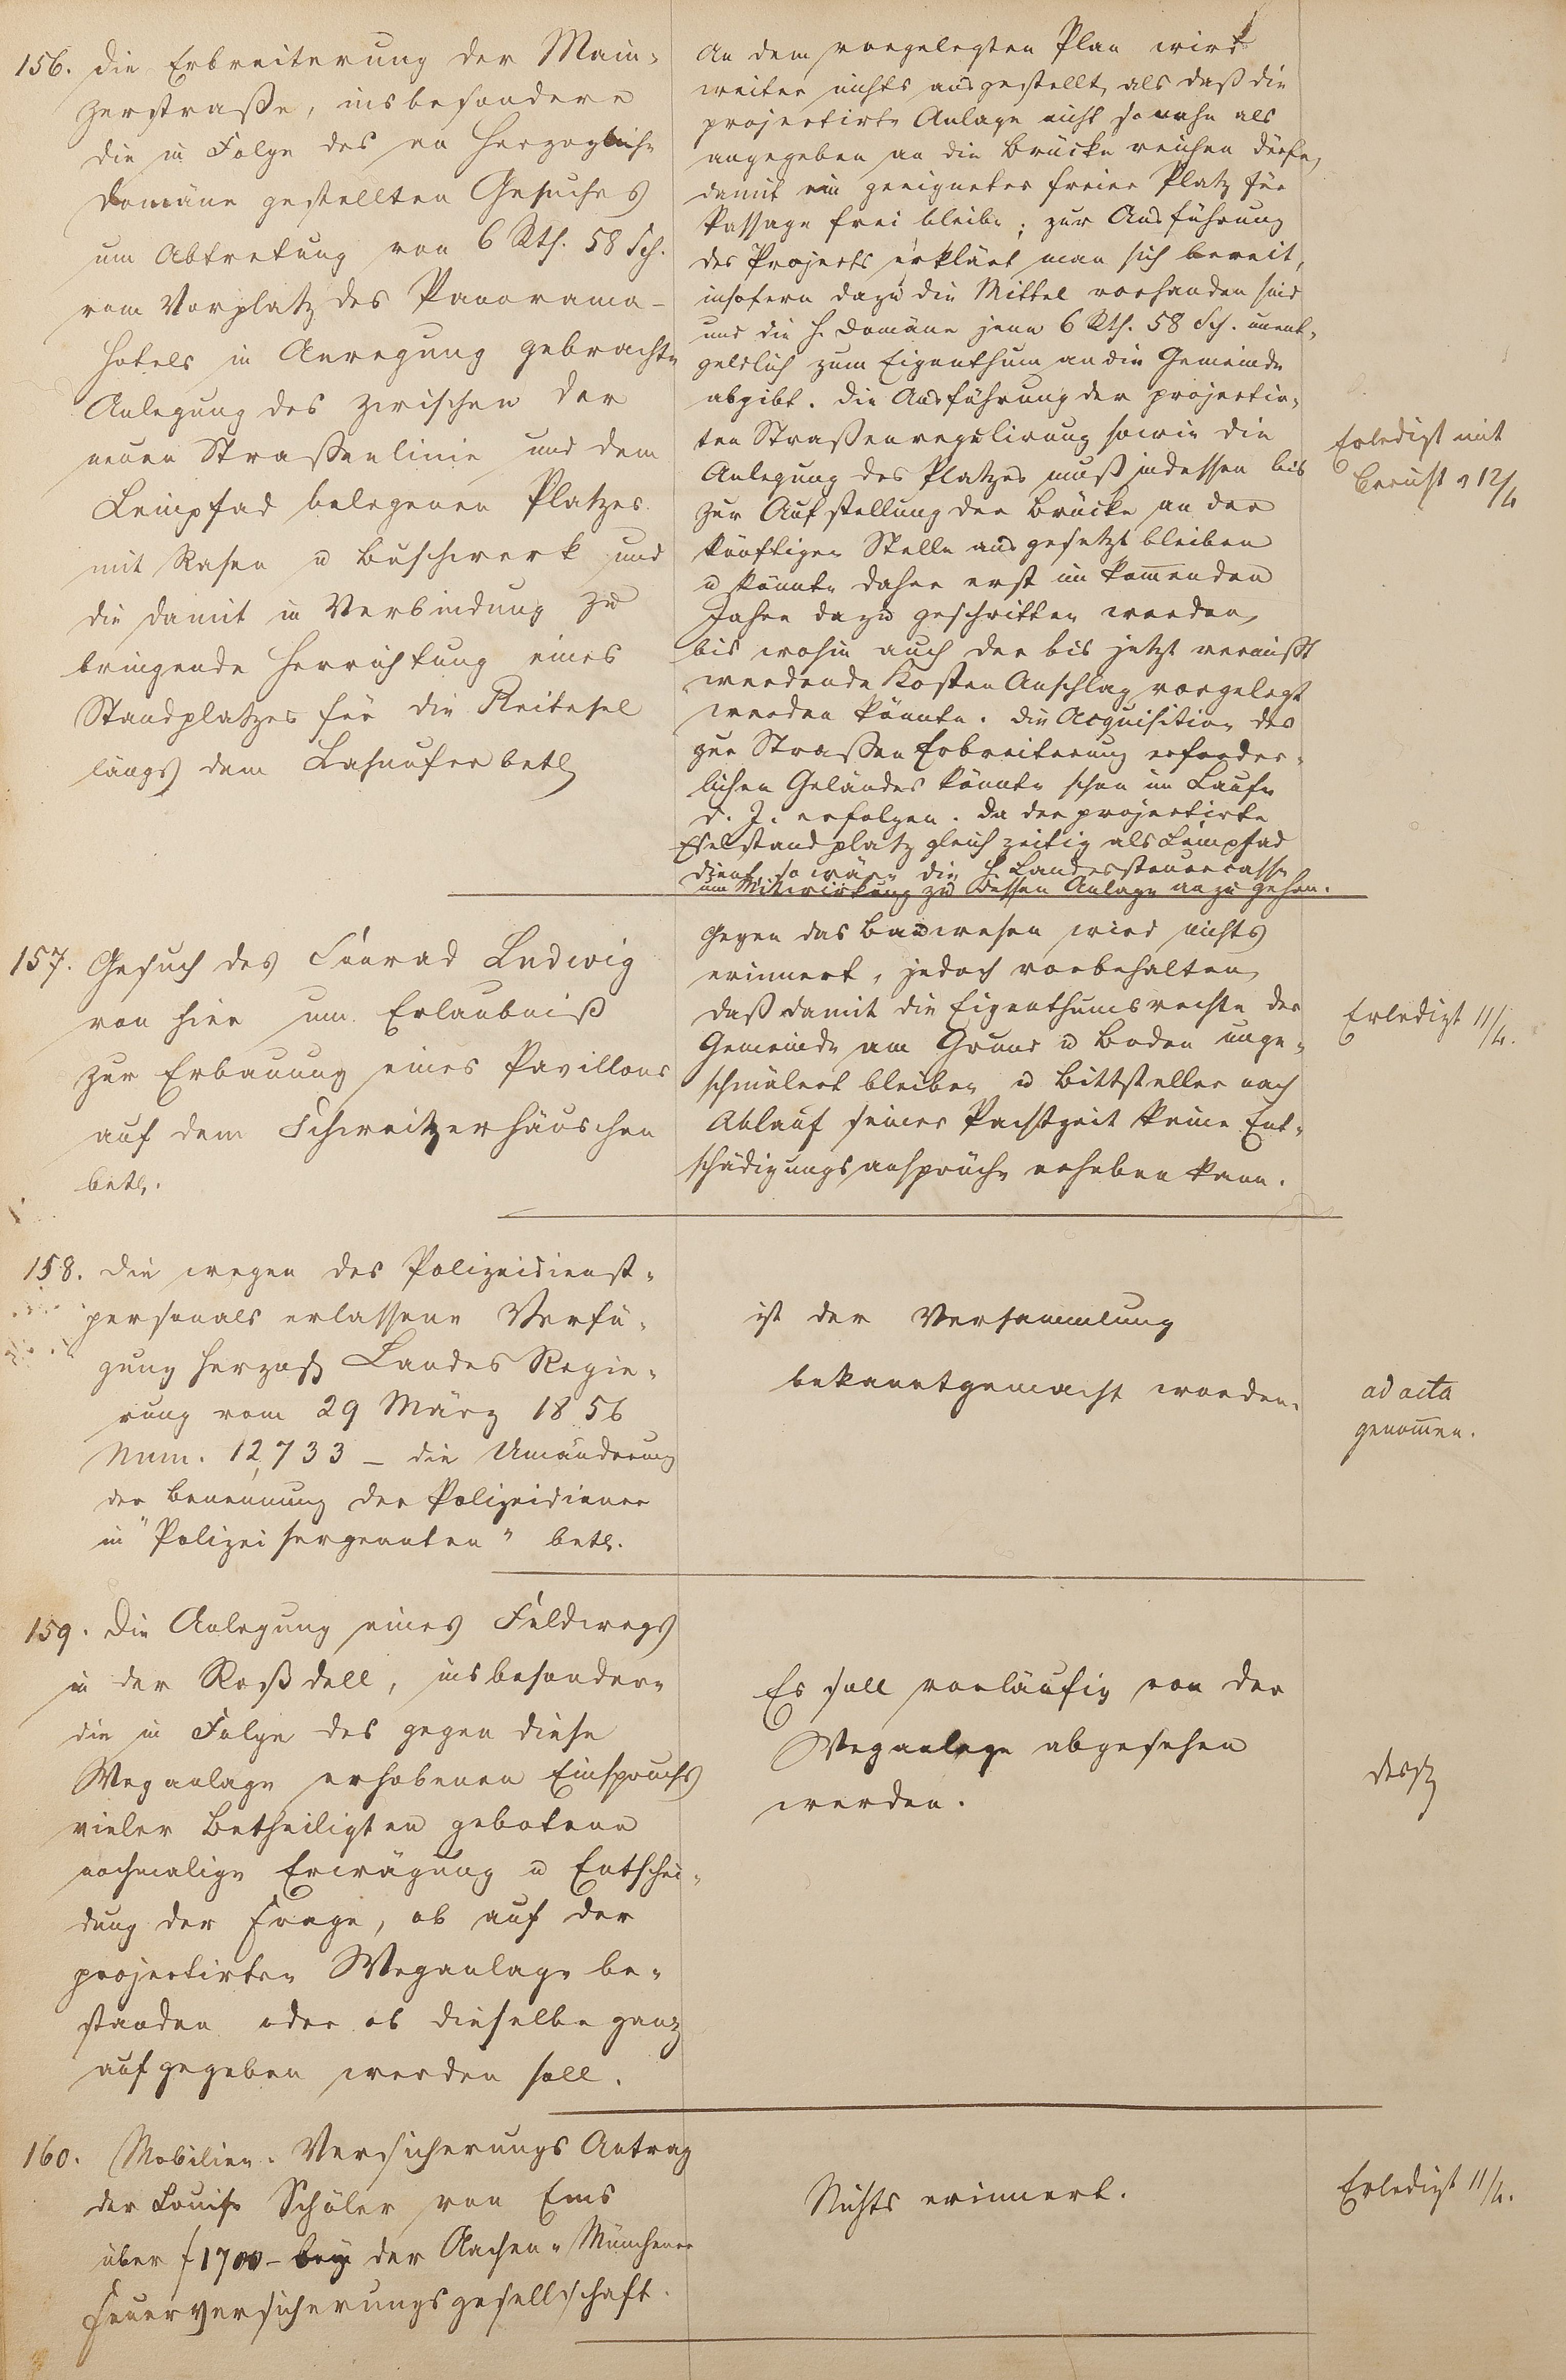 156. die Erbreiterung der Main-
zerstraße, insbesondere
die in Folge des an Herzogliche
Domäne gestellten Gesuches
um Abtretung von 6 Rth. 58 Sch.
vom Vorplatz des Panorama-
hotels in Anregung gebrachte
Anlegung des zwischen der
neuen Straßenlinie und dem
Leinpfad belegenen Platzes
mit Rasen u Buschwerk und
die damit in Verbindung zu
bringende Herrichtung eines
Standplatzes für die Reitesel
längs dem Lahnufer betr
An dem vorgelegten Plan wird
weiter nichts ausgestellt, als daß die
projectirte Anlage nicht so nahe als
angegeben an die Brücke reichen dürfe,
damit ein geeigneter freier Platz für
Passage frei bleibe; zur Ausführung
des Projects erklärt man sich bereit,
insofern dazu die Mittel vorhanden sind
und die H. Domäne jene 6 Rth. 58 Sch. unent-
geldlich zum Eigenthum an die Gemeinde
abgibt. Die Ausführung der projectir-
ten Straßenregulirung sowie die
Anlegung des Platzes muß indessen bis
zur Aufstellung der Brücke an der
künftigen Stelle ausgesetzt bleiben
u könnte daher erst im kom̅enden
Jahre dazu geschritten werden,
bis wohin auch der bis jetzt vermißt
werdende Kosten Anschlag vorgelegt
werden könnte. Die Acquisition des
zur Straßen Erbreiterung erforder-
lichen Geländes könnte schon im Laufe
d. J. erfolgen. Da der projectirte
Eselstandplatz gleichzeitig als Leinpfad
dient, so wäre die H. Landessteuercasse
um Mitwirkung zu dessen Anlage anzugehen.
Erledigt mit
Bericht v 12/4
157. Gesuch des Conrad Ludwig
von hier um Erlaubniß
zur Erbauung eines Pavillons
auf dem Schweitzerhäuschen
betr.
Gegen das Bauwesen wird nichts
erinnert, jedoch vorbehalten,
daß damit die Eigenthumsrechte der
Gemeinde am Grund u Boden unge-
schmälert bleiben u Bittsteller nach
Ablauf seiner Pachtzeit keine Ent-
schädigungsansprüche erheben kann.
Erledigt 11/4.
158. die wegen des Polizeidienst-
personals erlassene Verfü-
gung Herzogl Landes Regie-
rung vom 29 März 1856
Num. 12,733 - die Umänderung
der Benennung der Polizeidiener
in "Polizeisergeanten" betr.
ist der Versammlung
bekanntgemacht worden.
ad acta
genom̅en.
159. Die Anlegung eines Feldwegs
in der Roßdell, insbesondere
die in Folge des gegen diese
Weganlage erhobenen Einspruchs
vieler Betheiligten gebotene
nochmalige Erwägung u Entschei-
dung der Frage, ob auf der
projectirten Weganlage be-
standen oder ob dieselbe ganz
aufgegeben werden soll.
Es soll vorläufig von der
Weganlage abgesehen
werden.
160. Mobilien-Versicherungs Antrag
der Louise Schüler von Ems
über f 1700 - bey der Aachen-Münchener
Feuerversicherungsgesellschaft.
Nichts erinnert.
Erledigt 11/4.